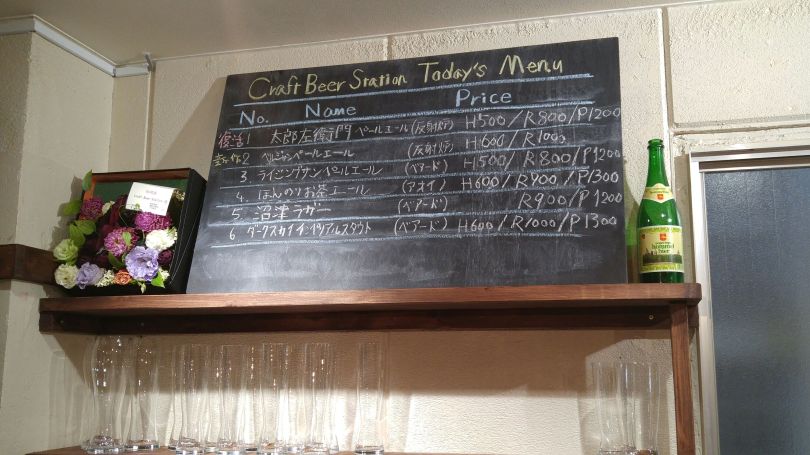 Craft Beer Station Today's Menu
No. Name Price
復活! 1 太郎左衛門ペールエール (反射炉) H500/R800/P1200
新作 2 ベルジャンペールエール (反射炉) H600/R1000
3 ライジングサンペールエール (ベアード) H500/R800/P1200
4. ほんのりお茶エール (アオイ) H600/R900/P1300
5. 沼津ラガー (ベアード) R900/P1200
6 ダークスカイインペリアルスタウト (ベアード) H600/R1000/P1300